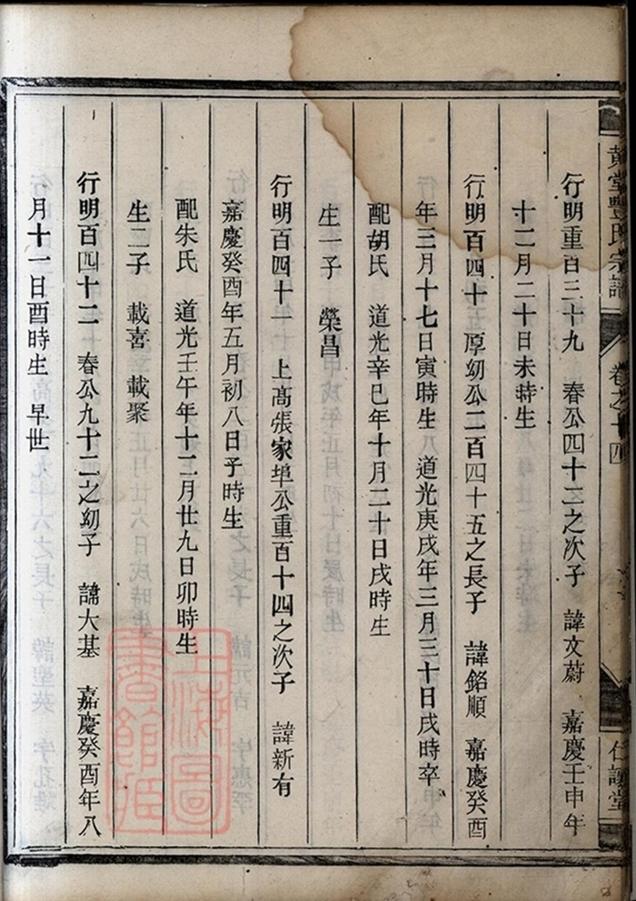 黃堂豐氏宗譜
卷之十四
仁讓堂
行明重百三十九 春公四十三之次子 諱文蔚 嘉慶壬申年
十二月二十日未時生
行明百四十 厚幼公二百四十五之長子 諱銘順 嘉慶癸酉
年三月十七日寅時生 道光庚戌年三月三十日戌時卒
配胡氏 道光辛巳年十月二十日戌時生
生一子 榮昌
行明百四十一 上髙張家埠公重百十四之次子 諱新有
嘉慶癸酉年五月初八日子時生
配朱氏 道光壬午年十二月廿九日卯時生
生二子 載喜 載聚
行明百四十二 春公九十二之幼子 諱大基 嘉慶癸酉年八
月十一日酉時生 早世
上海圖
書館藏